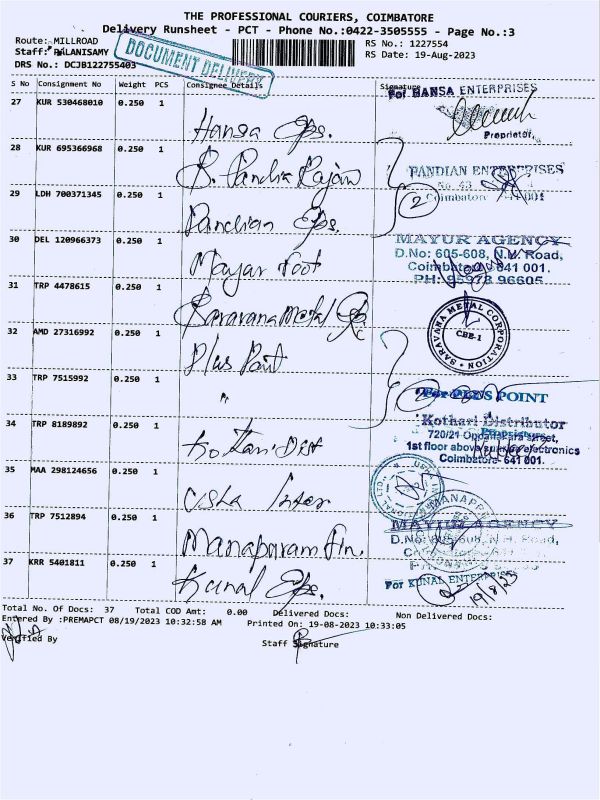 THE PROFESSIONAL COURIERS, COIMBATORE
Delivery Runsheet - PCT - Phone No.:0422-3505555 - Page No.:3
Route: MILLROAD
RS No.: 1227554
Staff: PALANISAMY
RS Date: 19-Aug-2023
DRS No.: DCJB122755403
DOCUMENT DELIVERY
S No Consignment No Weight PCS Consignee Details Signature
27 KUR 530468010 0.250 1 Hansa Eps.
For HANSA ENTERPRISES
Proprietor.
28 KUR 695366968 0.250 1 B. Pandia Rajan
PANDIAN ENTERPRISES
No. 43
Coimbatore 641 001
2
29 LDH 700371345 0.250 1 Pandian Eps.
30 DEL 120966373 0.250 1 Mayur Foot
MAYUR AGENCY
D.No: 605-608, N.H. Road,
Coimbatore 641 001.
PH: 95978 96605
31 TRP 4478615 0.250 1 Saravana metal
SARAVANA METAL CORPORATION
CBE-1
32 AMD 27316992 0.250 1 Plus Point
33 TRP 7515992 0.250 1 "
For PLUS POINT
34 TRP 8189892 0.250 1 Kothari Dist
Kothari Distributor
Proprietor
720/21 Oppanakara street,
1st floor above sunker electronics
Coimbatore- 641 001.
35 MAA 298124656 0.250 1 Usha Inter
36 TRP 7512894 0.250 1 Manapuram Fin.
MAYUR AGENCY
D.No: 605-608, N.H. Road,
37 KRR 5401811 0.250 1 Kunal Eps.
For KUNAL ENTERPRISES
19/8/23
Total No. Of Docs: 37 Total COD Amt: 0.00 Delivered Docs: Non Delivered Docs:
Entered By :PREMAPCT 08/19/2023 10:32:58 AM Printed On: 19-08-2023 10:33:05
Verified By
Staff Signature